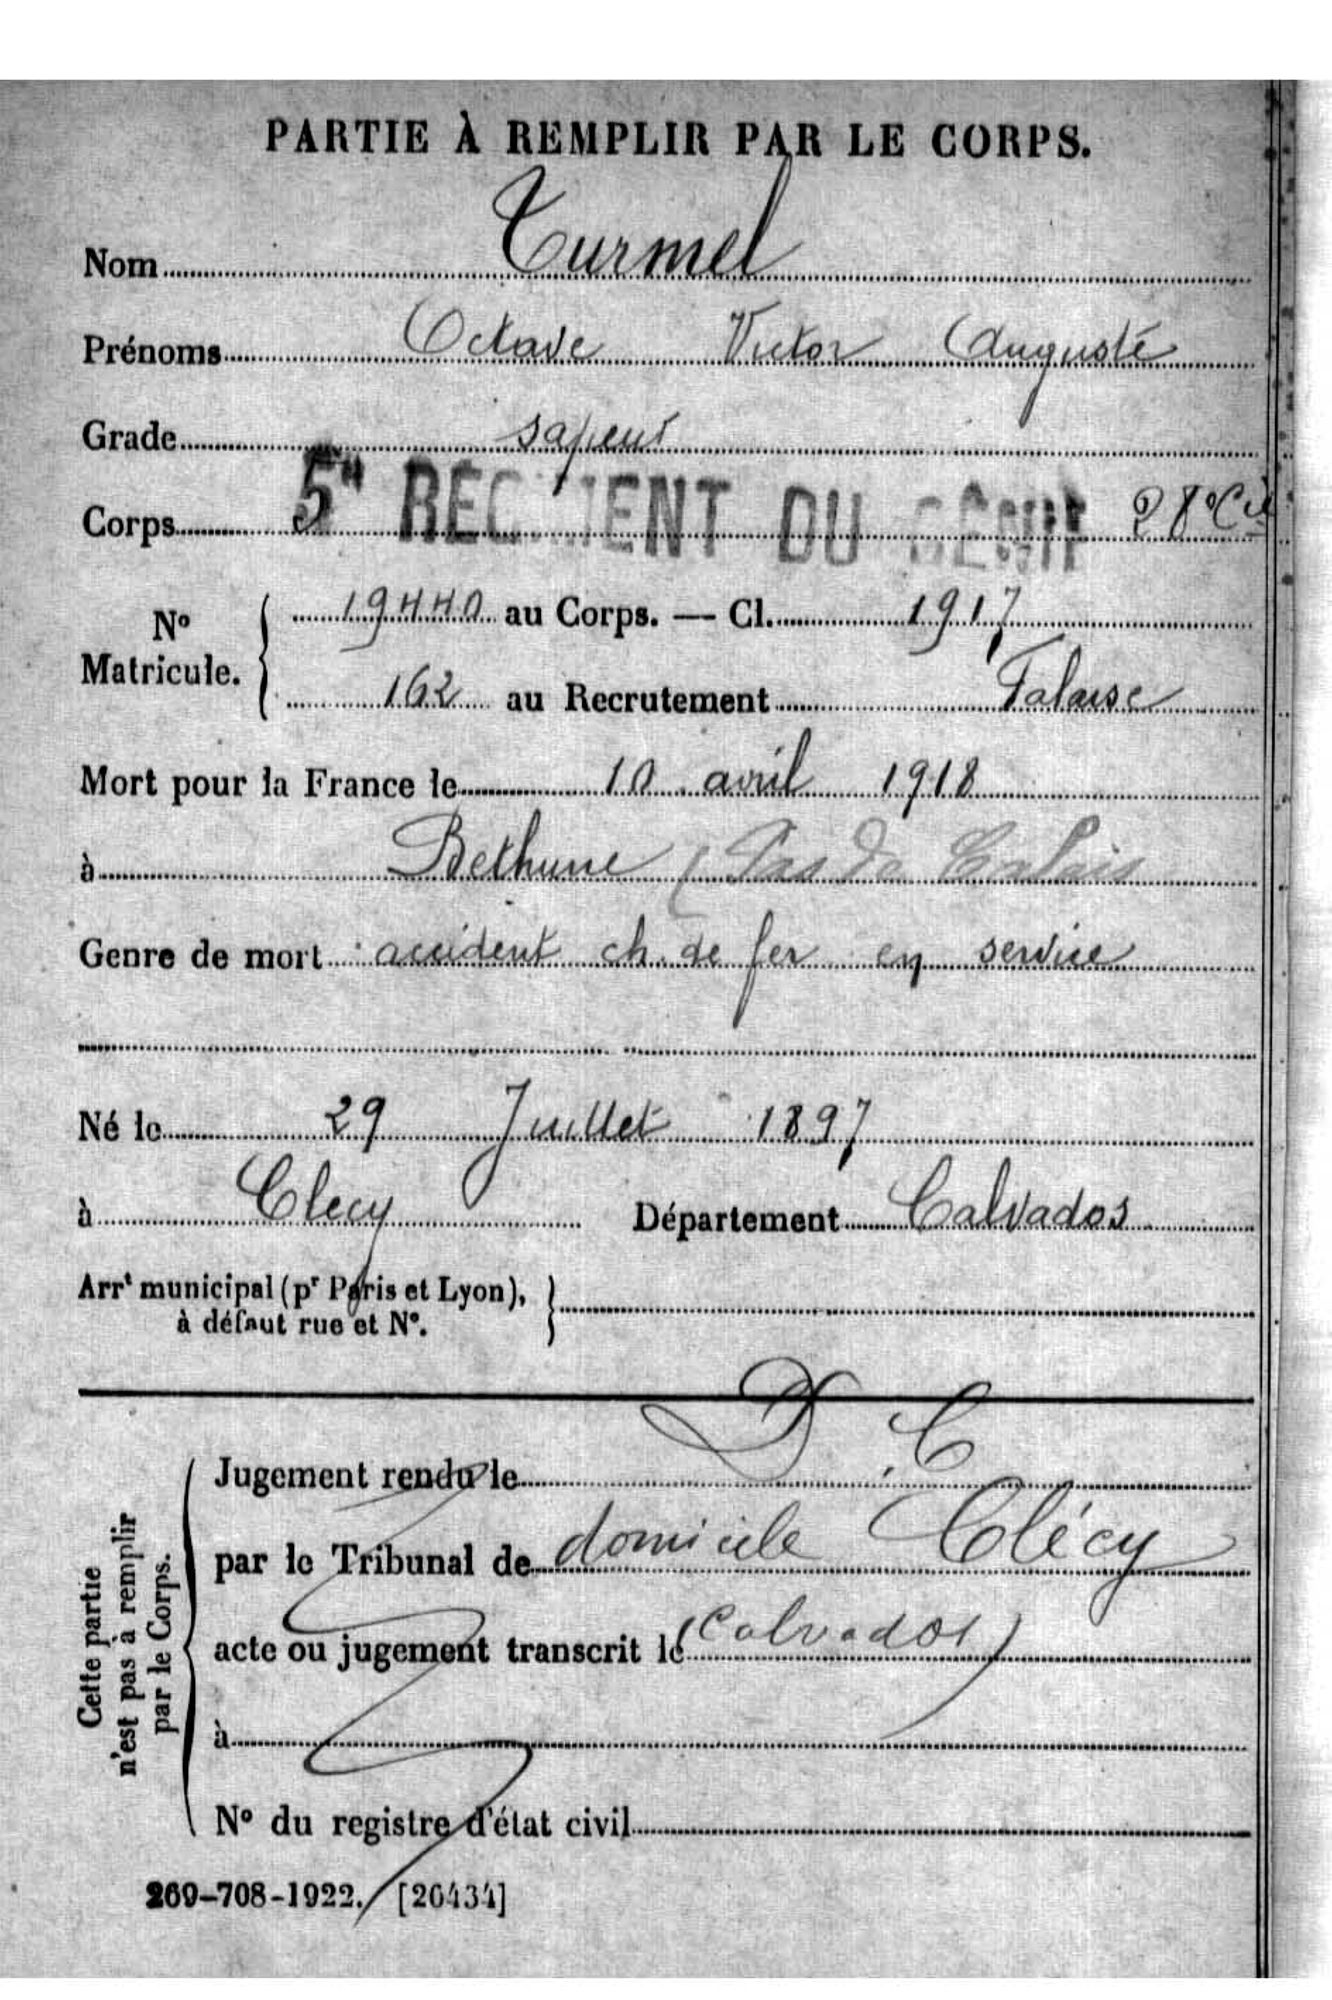 PARTIE À REMPLIR PAR LE CORPS.
Nom Turmel
Prénoms Octave Victor Auguste
Grade sapeur
Corps 5e RÉGIMENT DU GÉNIE 28e Cie
No Matricule. { 19440 au Corps. — Cl. 1917
162 au Recrutement Falaise
Mort pour la France le 10 avril 1918
à Bethune (Pas de Calais
Genre de mort accident ch. de fer en service
Né le 29 Juillet 1897
à Clecy Département Calvados
Arrt municipal (pr Paris et Lyon),
à défaut rue et No.
D. C
Jugement rendu le
par le Tribunal de domicile Clécy
acte ou jugement transcrit le (Calvados)
à
No du registre d'état civil
Cette partie
n'est pas à remplir
par le Corps.
269-708-1922. [26434]